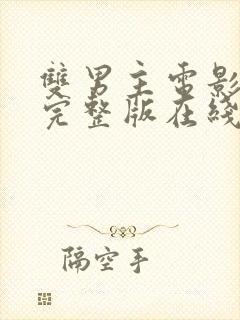 雙男主電影
完整版在綫
隔空手